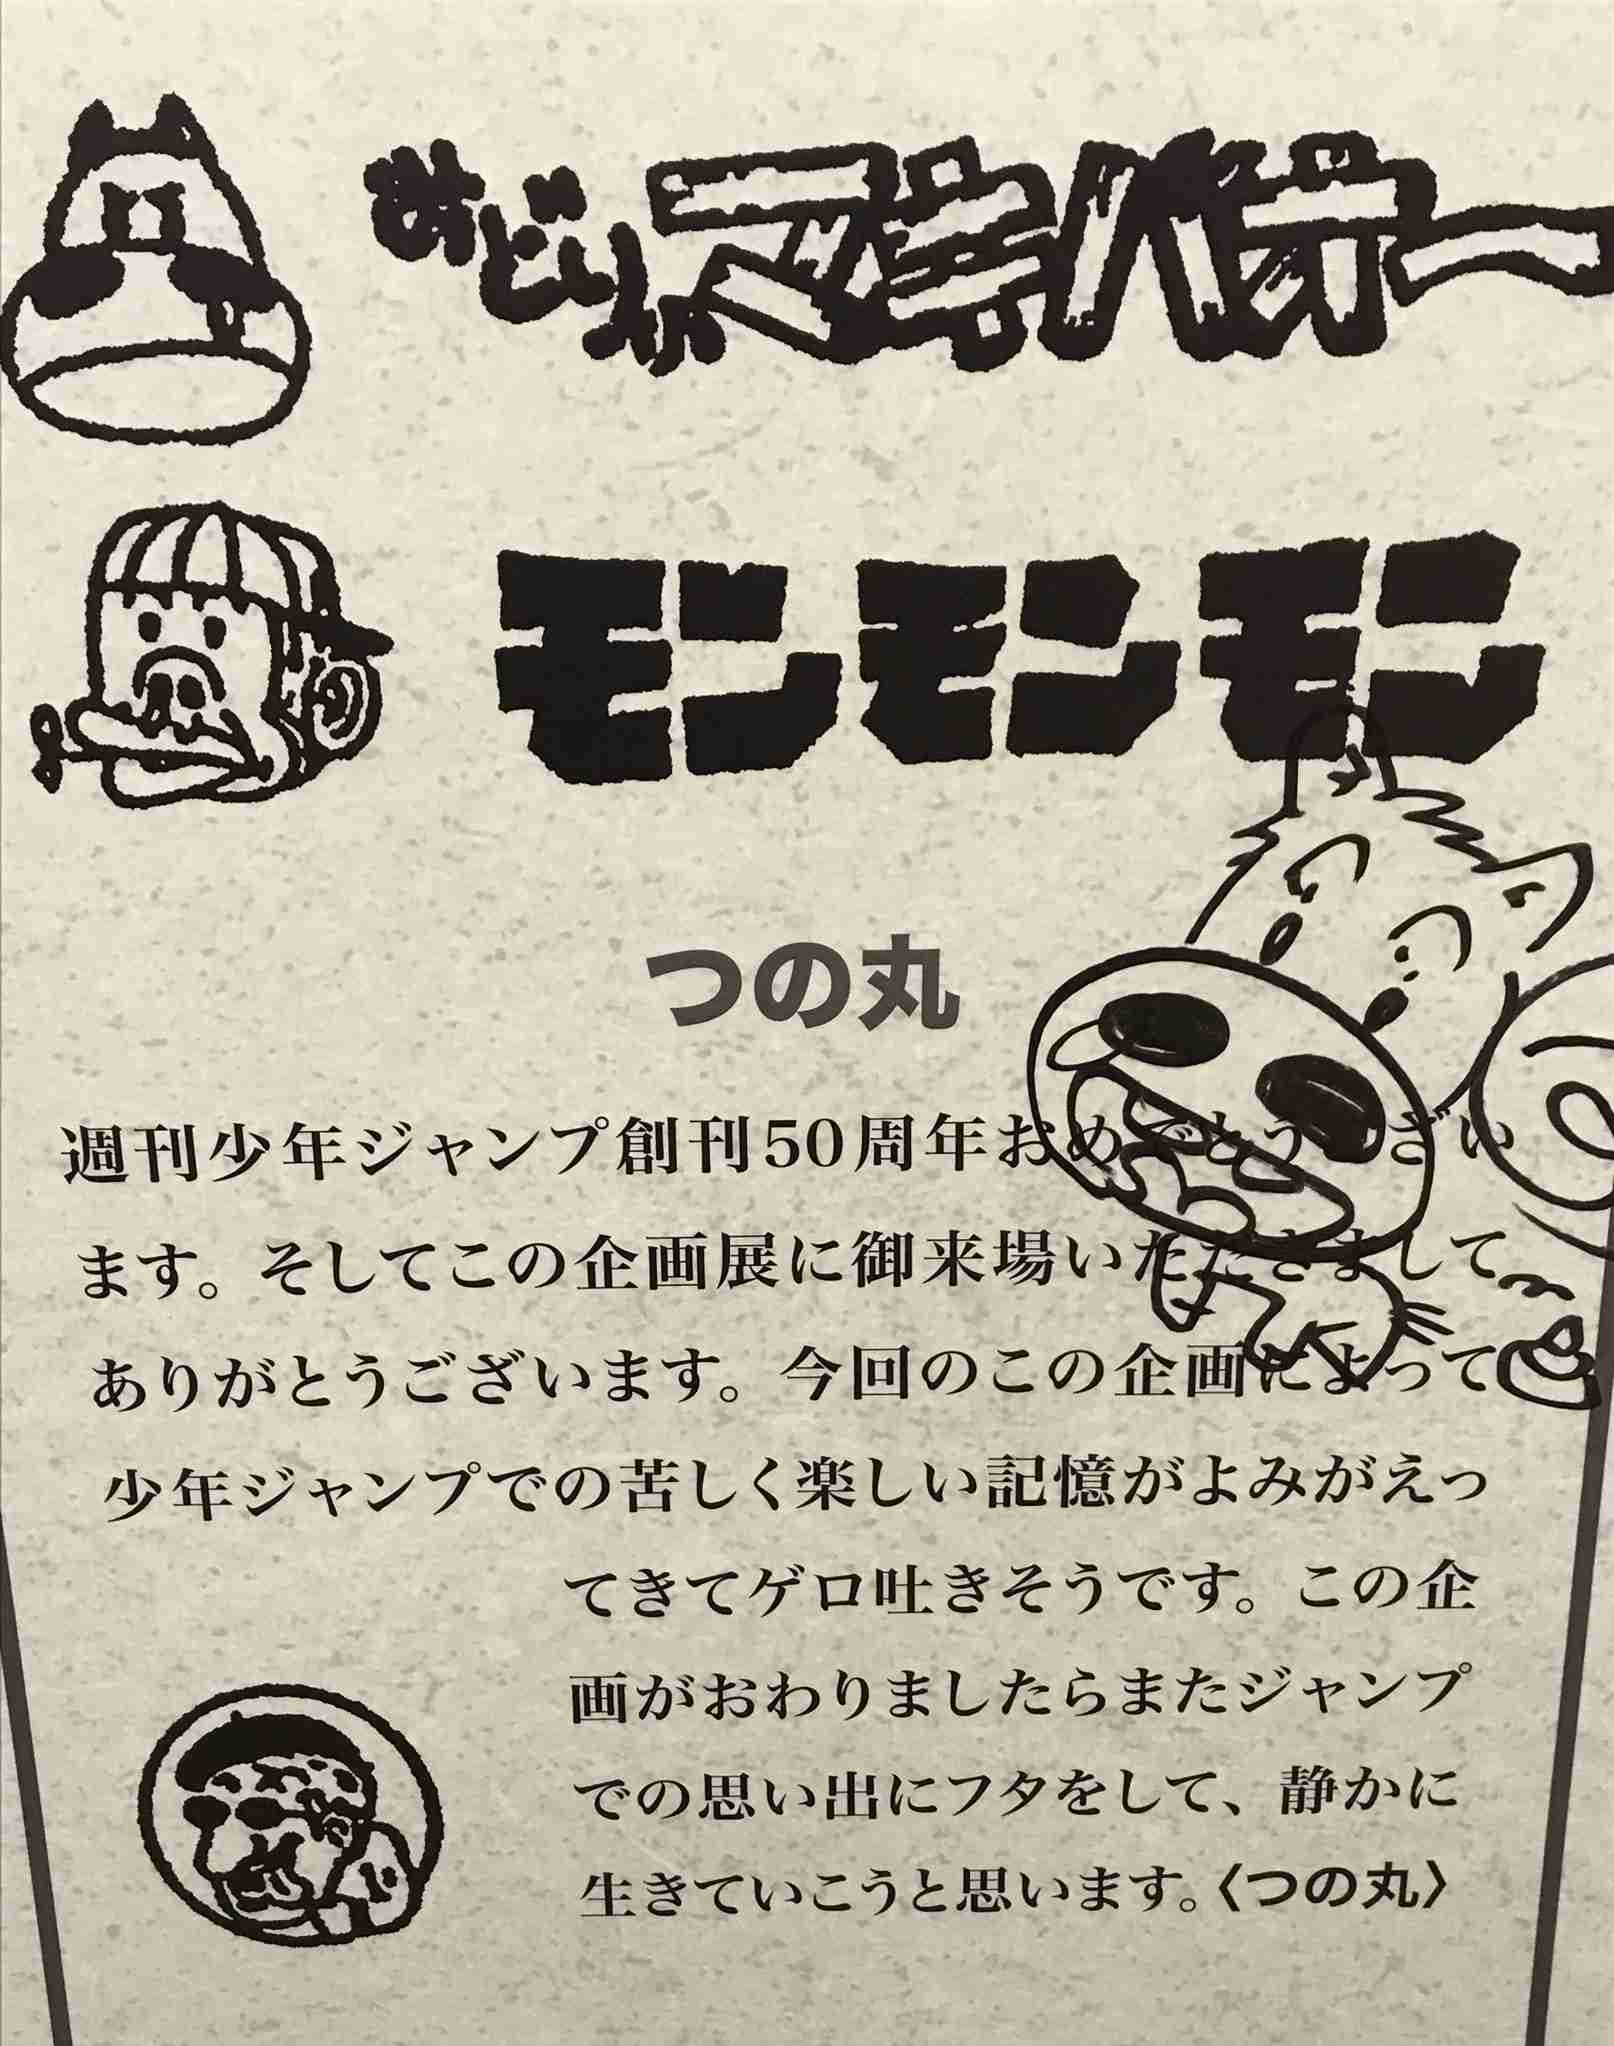 みどりのマキバオー
モンモンモン
つの丸
週刊少年ジャンプ創刊50周年おめでとうございい
ます。そしてこの企画展に御来場いただきまして
ありがとうございます。今回のこの企画によって
少年ジャンプでの苦しく楽しい記憶がよみがえっ
てきてゲロ吐きそうです。この企
画がおわりましたらまたジャンプ
での思い出にフタをして、静かに
生きていこうと思います。〈つの丸〉